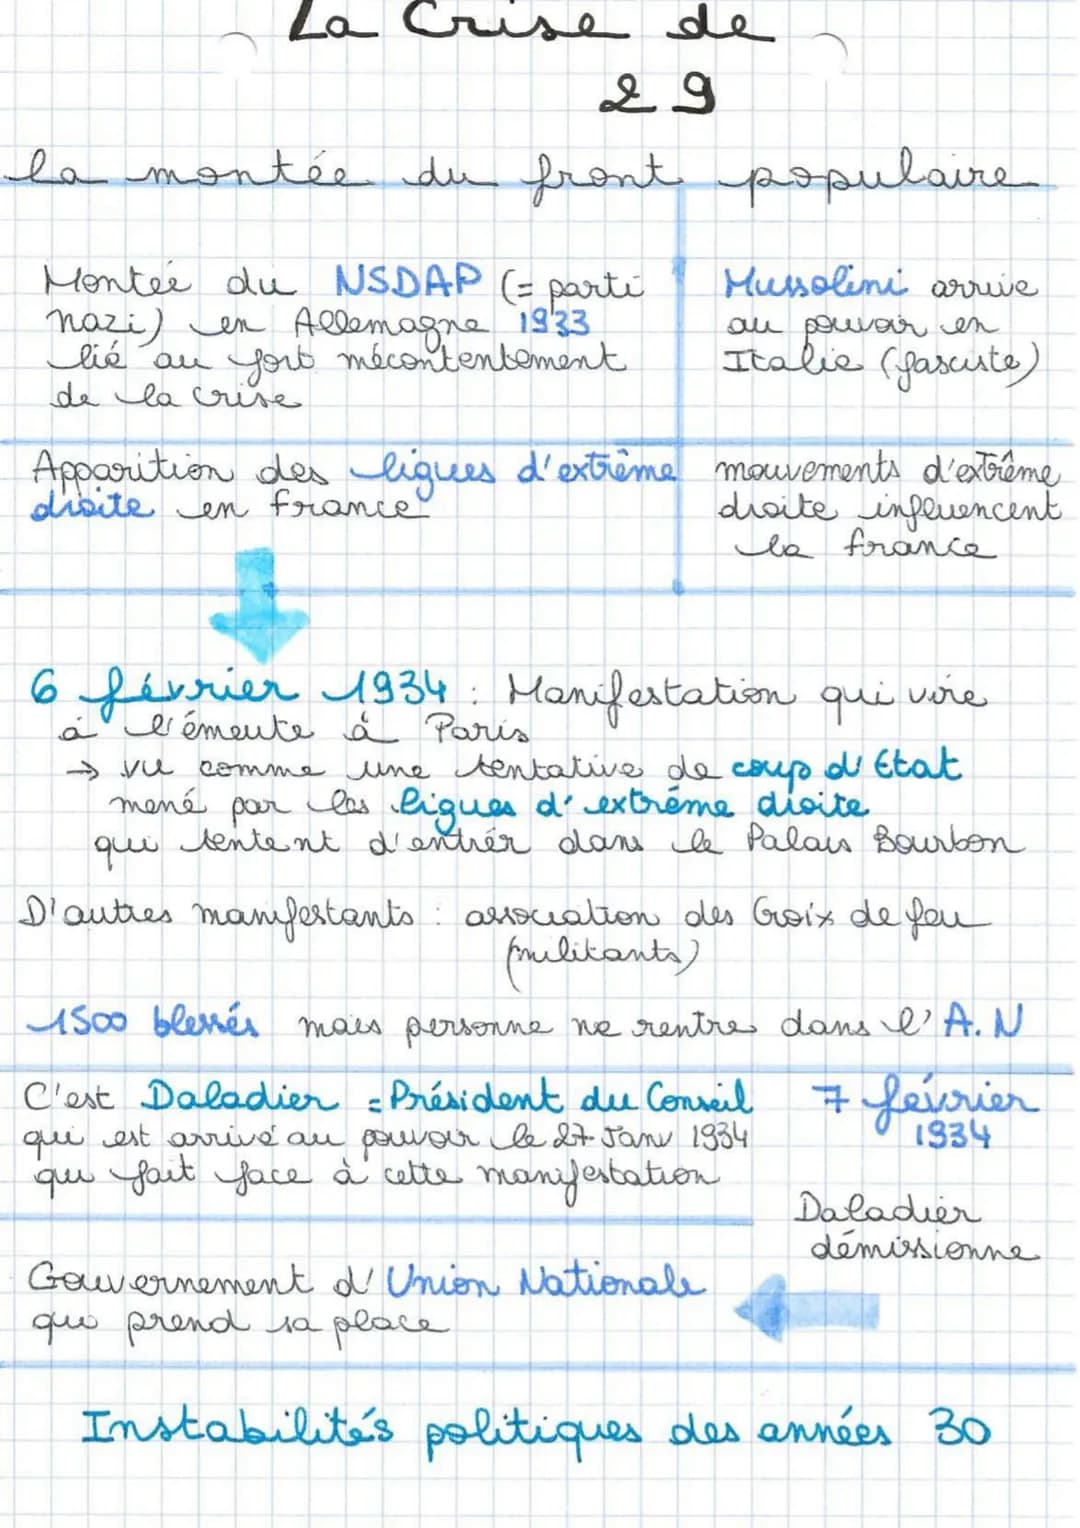 La Crise de
29
la montée du front populaire
Montée du NSDAP (= parti
nazi) en Allemagne 1933
lié au fort mécontentement
de la crise
Mussolini arrive
au pouvoir en
Italie (fasciste)
Apparition des ligues d'extrême
droite en france
mouvements d'extrême
droite influencent
la france
6 février 1934 : Manifestation qui vire
à l'émeute à Paris
→ vu comme une tentative de coup d'Etat
mené par les ligues d'extrême droite
qui tentent d'entrer dans le Palais Bourbon
D'autres manifestants : association des Croix de feu
(militants)
1500 blessés mais personne ne rentre dans l'A.N
C'est Daladier = Président du Conseil
qui est arrivé au pouvoir le 27 Janv 1934
qui fait face à cette manifestation
7 février
1934
Daladier
démissionne
Gouvernement d'Union Nationale
qui prend sa place
Instabilités politiques des années 30